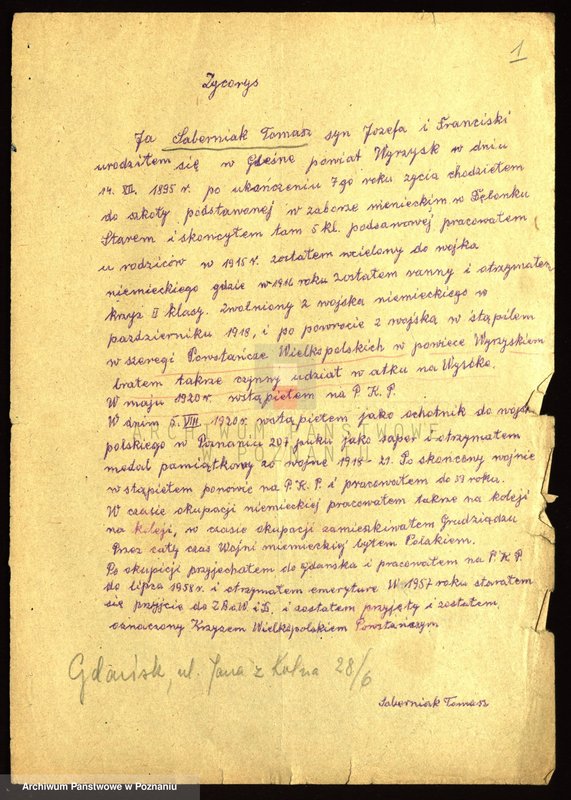 1
Zycorys
Ja Saberniak Tomasz syn Jozefa i Franciski
urodziłem się w Gleśnę powiat Wyrzysk w dniu
14. XII. 1895 r. po ukończeniu 7go roku zycia chodziełem
do szkoły podstawowej w zaborze niemieckim w
Starem i skonczyłem tam 5 kl. podsawowej pracowałem
u rodziców w 1915 r. zostałem wcielony do wojka
niemieckiego gdzie w 1916 roku zostałem ranny i otrzymałem
krzyz II klasy. Zwolniony z wojska niemieckiego w
pazdzierniku 1918, i po powrocie z wojska w stąpiłem
w szeregi Powstańcze Wielkopolskich w powiece Wyrzyskiem
brałem takrze czynny udział w atku na Wysoke.
W maju 1920 r. wstąpiełem na P. K. P.
W dniu 5. VIII. 1920 r. wstąpiełem jako ochotnik do wojska
polskiego w Poznaniu 207 puku jako saper i otrzymałem
medal pamiątkowy za wojnę 1918-21. Po skonceny wojnie
w stąpiełem ponownie na P.K.P. i pracowałem do 39 roku.
W czasie okupacji niemieckiej pracowałem takrze na koleji
na koleji, w czasie okupacji zamieszkiwałem Grudziądzu
Przez cały czas Wojni niemieckiej byłem Polakiem.
Po okupicji przyjechałem do Gdańska i pracowałem na P.K.P.
do lipca 1958 r. i otrzymałem emeryture W 1957 roku starałem
się przyjcie do Z.B.o.W. i D. i zostałem przyjęty i zostałem,
oznaczony Krzyzem Wielkopolskiem Powstańczym
Gdańsk, ul. Jana z Kolna 28/6
Saberniak Tomasz
ARCHIWUM PAŃSTWOWE
W POZNANIU
Archiwum Państwowe w Poznaniu